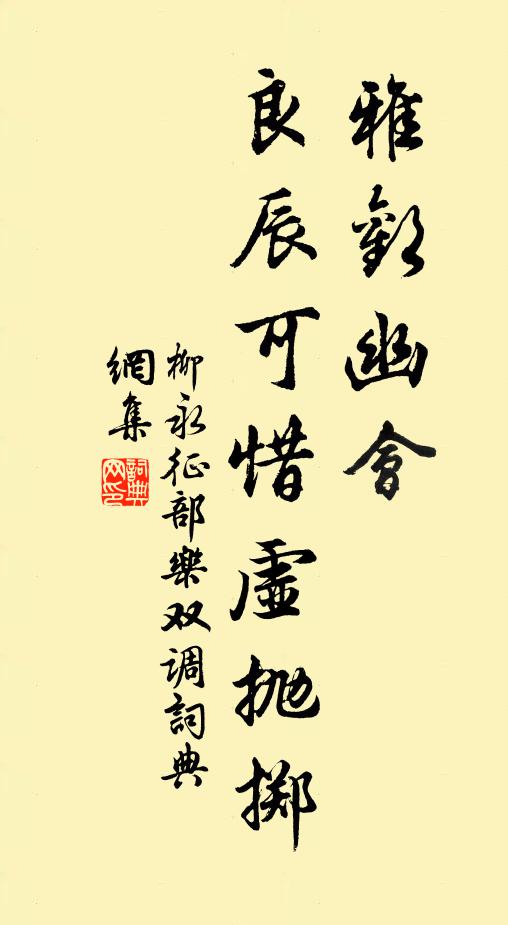 雅歡幽會
良辰可惜虛抛掷
柳永征部樂双调詞典
網集
詞典網印